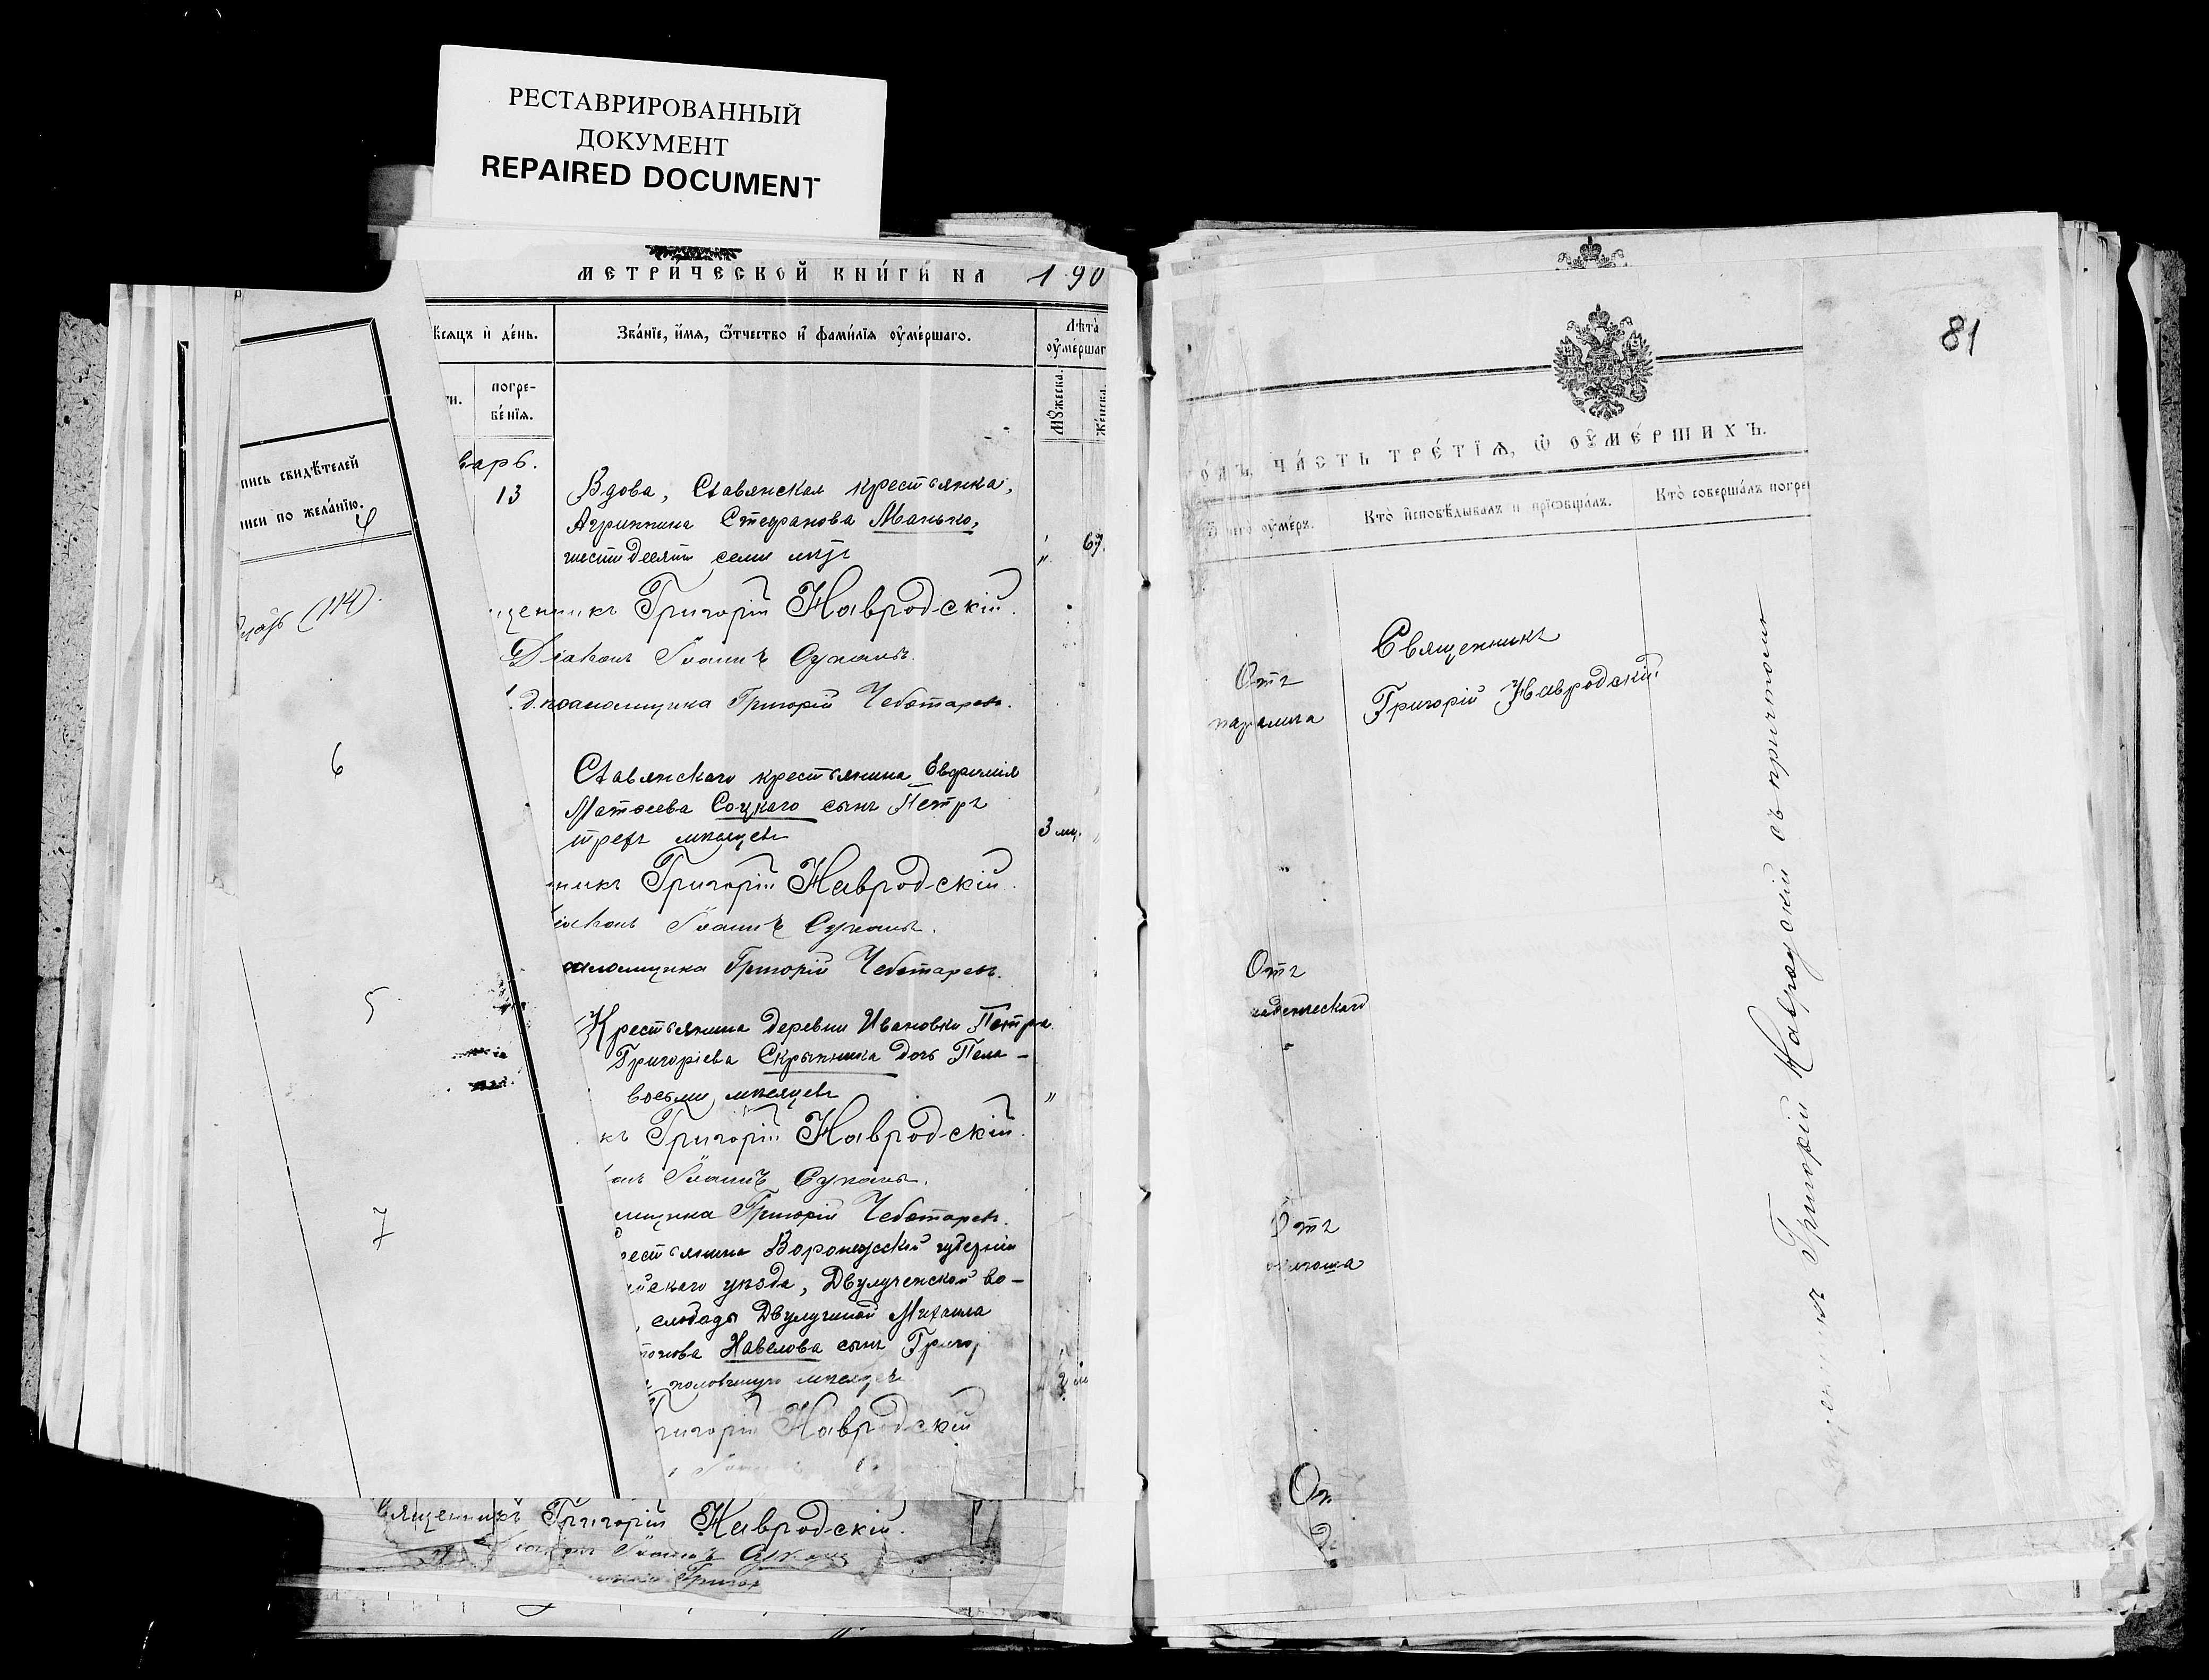 РЕСТАВРИРОВАННЫЙ
ДОКУМЕНТ
REPAIRED DOCUMENT
МЕТРИ́ЧЕСКОЙ КНИ́ГИ НА 190
пись свидѣ́телей
по жела́нїю.
(114).
6
5
7
и де́нь.
Зва́нїе, и́мя, ѻ҆́тчество и҆ фами́лїя оу҆ме́ршаго.
Лѣта̀
оу҆ме́ршаг
погре-
бе́нїя.
Мꙋ́жеска.
Же́нска.
варь.
13
Вдова, Славянская крестьянка,
Агриппина Стефанова Манько,
шестидесяти семи лѣтъ
„ 67.
щенникъ Григорій Навродскій.
Діаконъ Іоаннъ
д. псаломщика Григорій Чеботаревъ.
Славянскаго крестьянина Евфимія
Матѳеева Соцкаго сынъ Петръ
трехъ мѣсяцевъ
3 мц. „
никъ Григорій Навродскій.
іаконъ Іоаннъ
аломщика Григорій Чеботаревъ.
Крестьянина деревни Ивановки Петра
Григоріева Скрыпника дочь Пела-
восьми мѣсяцевъ
„
къ Григорій Навродскій.
онъ Іоаннъ
мщика Григорій Чеботаревъ.
рестьянина Воронежской губерніи
йскаго уѣзда, Двулученской во-
, слободы Двулучной Михаила
Павелова сынъ Григор
половиною мѣсяцевъ
ригорій Навродскій
Священникъ Григорій Навродскій.
Іоаннъ
Григор
81
ЧА́СТЬ ТРЕ́ТЇѦ, Ѡ҆ ОУ҆МЕ́РШИХЪ.
чего̀ оу҆ме́ръ.
Кто̀ и҆сповѣ́дывалъ и҆ прїѡбща́лъ.
Кто̀ соверша́лъ погре
Отъ
паралича
Священникъ
Григорій Навродскій.
Отъ
аденческаго
Отъ
Григорій Навродскій съ причтомъ